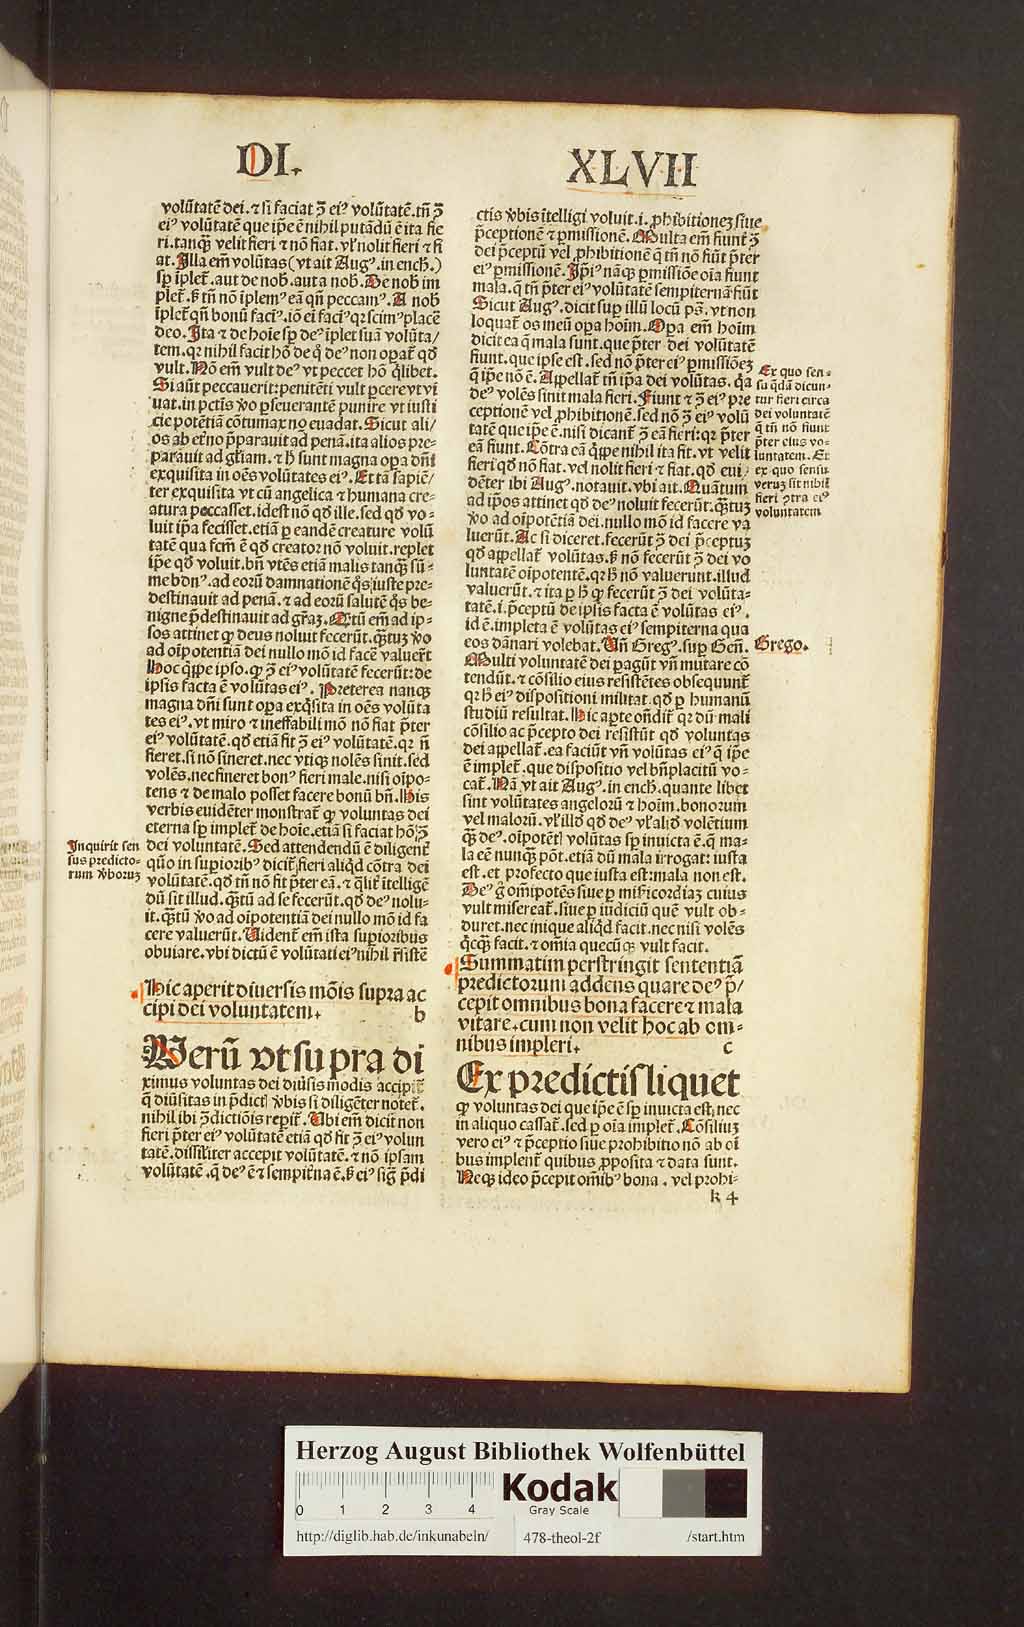 DI.
XLVII
volūtatē dei. ⁊ si faciat ꝯ̄ eiꝰ volūtatē. tñ ꝯ̄
eiꝰ volūtatē que ip̄e ē nihil putādū ē ita fie
ri. tanqꝫ velit fieri ⁊ nō fiat. vľ nolit fieri ⁊ fi
at. Illa em̄ volūtas (vt ait Augꝰ. in ench.)
sp̄ īplet̄. aut de nob̄. aut a nob̄. De nob̄ im
plet̄. ꝫ tñ nō īplemꝰ eā qñ peccamꝰ. A nob̄
īplet̄ qñ bonū facīꝰ. iō ei facīꝰ qꝛ scimꝰ placē
deo. Ita ⁊ de hoīe sp̄ deꝰ īplet suā volūta/
tem. qꝛ nihil facit hō de q̊ deꝰ non opat̄ qd̄
vult. Nō em̄ vult deꝰ vt peccet hō q̇libet.
Si aūt peccauerit: penitēti vult ꝑcere vt vi
uat. in pctīs v̊o ꝑseuerantē punire vt iusti
cie potētiā cōtumax nō euadat. Sicut ali/
os ab et̄no p̄parauit ad penā. ita alios pre-
parauit ad gr̄am. ⁊ h̄ sunt magna oꝑa dñi
exquisita in oēs volūtates eiꝰ. Et tā sapiē/
ter exquisita vt cū angelica ⁊ humana cre-
atura peccasset. idest nō qd̄ ille. sed qd̄ vo-
luit ip̄a fecisset. etiā ꝑ eandē creature volū
tatē qua fcm̄ ē qd̄ creator nō voluit. replet
ip̄e qd̄ voluit. bñ vtēs etiā malis tanqꝫ sū-
me bonꝰ. ad eorū damnationē q̊s iuste pre-
destinauit ad penā. ⁊ ad eorū salutē q̊s be-
nigne p̄destinauit ad gr̄az. Qn̄tū em̄ ad ip-
sos attinet qꝫ deus noluit fecerūt. qn̄tuꝫ v̊o
ad oīpotentiā dei nullo mō id facē valuer̄t
Hoc q̇ppe ipso. qꝫ ꝯ̄ eiꝰ volūtatē fecerūt: de
ipsis facta ē volūtas eiꝰ. Preterea nanqꝫ
magna dñi sunt oꝑa exq̇sita in oēs volūta
tes eiꝰ. vt miro ⁊ ineffabili mō nō fiat p̄ter
eiꝰ volūtatē. qd̄ etiā fit ꝯ̄ eiꝰ volūtatē. qꝛ ñ
fieret. si nō sineret. nec vtiqꝫ nolēs sinit. sed
volēs. nec sineret bonꝰ fieri male. nisi oīpo-
tens ⁊ de malo posset facere bonū bñ. His
verbis euidēter monstrat̄ qꝫ voluntas dei
eterna sp̄ implet̄ de hoīe. etiā si faciat hō ꝯ̄
dei voluntatē. Sed attendendū ē diligent̄
quō in supiorib̄ꝰ dicit̄ fieri aliq̇d cōtra dei
volūtatē. qd̄ tñ nō fit p̄ter eā. ⁊ q̄lit̄ ītelligē
dū sit illud. qn̄tū ad se fecerūt. qd̄ deꝰ nolu-
it. qn̄tū v̊o ad oīpotentiā dei nullo mō id fa
cere valuerūt. Uident̄ em̄ ista supioribus
obuiare. vbi dictū ē volūtati eiꝰ nihil r̄sistē
Inquirit sen
sus predicto-
rum v̊boruꝫ
Hic aperit diuersis mōis supra ac
cipi dei voluntatem. b
Uerū vt supra di
ximus voluntas dei diūsis modis accipit̄
q̄ diūsitas in p̄dicť v̊bis si diligēter notet̄.
nihil ibi ꝯ̄dictiōis reꝑit̄. Ubi em̄ dicit non
fieri p̄ter eiꝰ volūtatē etiā qd̄ fit ꝯ̄ eiꝰ volun
tatē. dissiliter accepit volūtatē. ⁊ nō ipsam
volūtatē. q̄ deꝰ ē ⁊ sempit̄na ē. ꝫ eiꝰ sig̃ p̄di
ctis v̊bis ītelligi voluit. i. ꝓhibitioneꝫ siue
p̄ceptionē ⁊ ꝑmissionē. Multa em̄ fiunt ꝯ̄
dei p̄ceptū vel ꝓhibitionē q̄ tñ nō fiūt p̄ter
eiꝰ ꝑmissionē. Ip̄iꝰ nāqꝫ ꝑmissiōe oīa fiunt
mala. q̄ tñ p̄ter eiꝰ volūtatē sempiternā fiūt
Sicut Augꝰ. dicit sup illū locū pš. vt non
loquat̄ os meū oꝑa hoīm. Oꝑa em̄ hoīm
dicit ea q̄ mala sunt. que p̄ter dei volūtatē
fiunt. que ipse est. sed nō p̄ter eiꝰ ꝑmissiōeꝫ
q̄ ip̄e nō ē. Appellat̄ tm̄ ip̄a dei volūtas. q̇a
deꝰ volēs sinit mala fieri. Fiunt ⁊ ꝯ̄ eiꝰ pre
ceptionē vel ꝓhibitionē. sed nō ꝯ̄ eiꝰ volū
tatē que ip̄e ē. nisi dicant̄ ꝯ̄ eā fieri: qꝛ p̄ter
eā fiunt. Cōtra eā q̇ppe nihil ita fit. vt velit
fieri qd̄ nō fiat. vel nolit fieri ⁊ fiat. qd̄ eui
dēter ibi Augꝰ. notauit. vbi ait. Quātum
ad ip̄os attinet qd̄ deꝰ noluit fecerūt. qn̄tuꝫ
v̊o ad oīpotētiā dei. nullo mō id facere va
luerūt. Ac si diceret. fecerūt ꝯ̄ dei p̄ceptuꝫ
qd̄ appellat̄ volūtas. ꝫ nō fecerūt ꝯ̄ dei vo
luntatē oīpotentē. qꝛ h̄ nō valuerunt. illud
valuerūt. ⁊ ita ꝑ h̄ qꝫ fecerūt ꝯ̄ dei volūta-
tatē. i. p̄ceptū de ipsis facta ē volūtas eiꝰ.
id ē. impleta ē volūtas eiꝰ sempiterna qua
eos dānari volebat. Uñ Gregꝰ. sup Geñ.
Multi voluntatē dei ꝑagūt vñ mutare cō
tendūt. ⁊ cōsilio eius resistētes obsequunt̄
qꝛ h̄ eiꝰ dispositioni militat. qd̄ ꝑ humanū
studiū resultat. Hic aꝑte oñdit̄ qꝛ dū mali
cōsilio ac p̄cepto dei resistūt qd̄ voluntas
dei appellat̄. ea faciūt vñ volūtas eiꝰ q̄ ip̄e
ē implet̄. que dispositio vel bñplacitū vo-
cat̄. Nā vt ait Augꝰ. in ench. quante libet
sint volūtates angelorū ⁊ hoīm. bonorum
vel malorū. vľ illd̄ qd̄ deꝰ vľ aliḋ volētium
qꝫ deꝰ. oīpotētť volūtas sp̄ inuicta ē. q̄ ma-
la eē nunqꝫ pōt. etiā dū mala irrogat: iusta
est. et profecto que iusta est: mala non est.
Deꝰ g̊ omīpotēs siue ꝑ miſicordiaꝫ cuius
vult misereat̄. siue ꝑ iudiciū quē vult ob-
duret. nec inique aliq̇d facit. nec nisi volēs
q̇cqꝫ facit. ⁊ omīa quecūqꝫ vult facit.
Ex quo sen-
su q̇dā dicun-
tur fieri circa
dei voluntatē
q̄ tñ nō fiunt
p̄ter eius vo-
luntatem. Et
ex quo sensu
veruꝫ sit nihil
fieri ꝯtra eiꝰ
voluntatem
Grego.
Summatim perstringit sententiā
predictorum addens quare deꝰ p̄/
cepit omnibus bona facere ⁊ mala
vitare. cum non velit hoc ab om-
nibus impleri. c
Ex predictis liquet
qꝫ voluntas dei que ip̄e ē sp̄ inuicta est: nec
in aliquo cassat̄. sed ꝑ oīa implet̄. Consiliuꝫ
vero eiꝰ ⁊ p̄ceptio siue prohibitio nō ab oī
bus implent̄ quibus ꝓposita ⁊ data sunt.
Neqꝫ ideo p̄cepit omīb̄ꝰ bona. vel prohi-
k 4
Herzog August Bibliothek Wolfenbüttel
0 1 2 3 4
Kodak
Gray Scale
http://diglib.hab.de/inkunabeln/ 478-theol-2f /start.htm